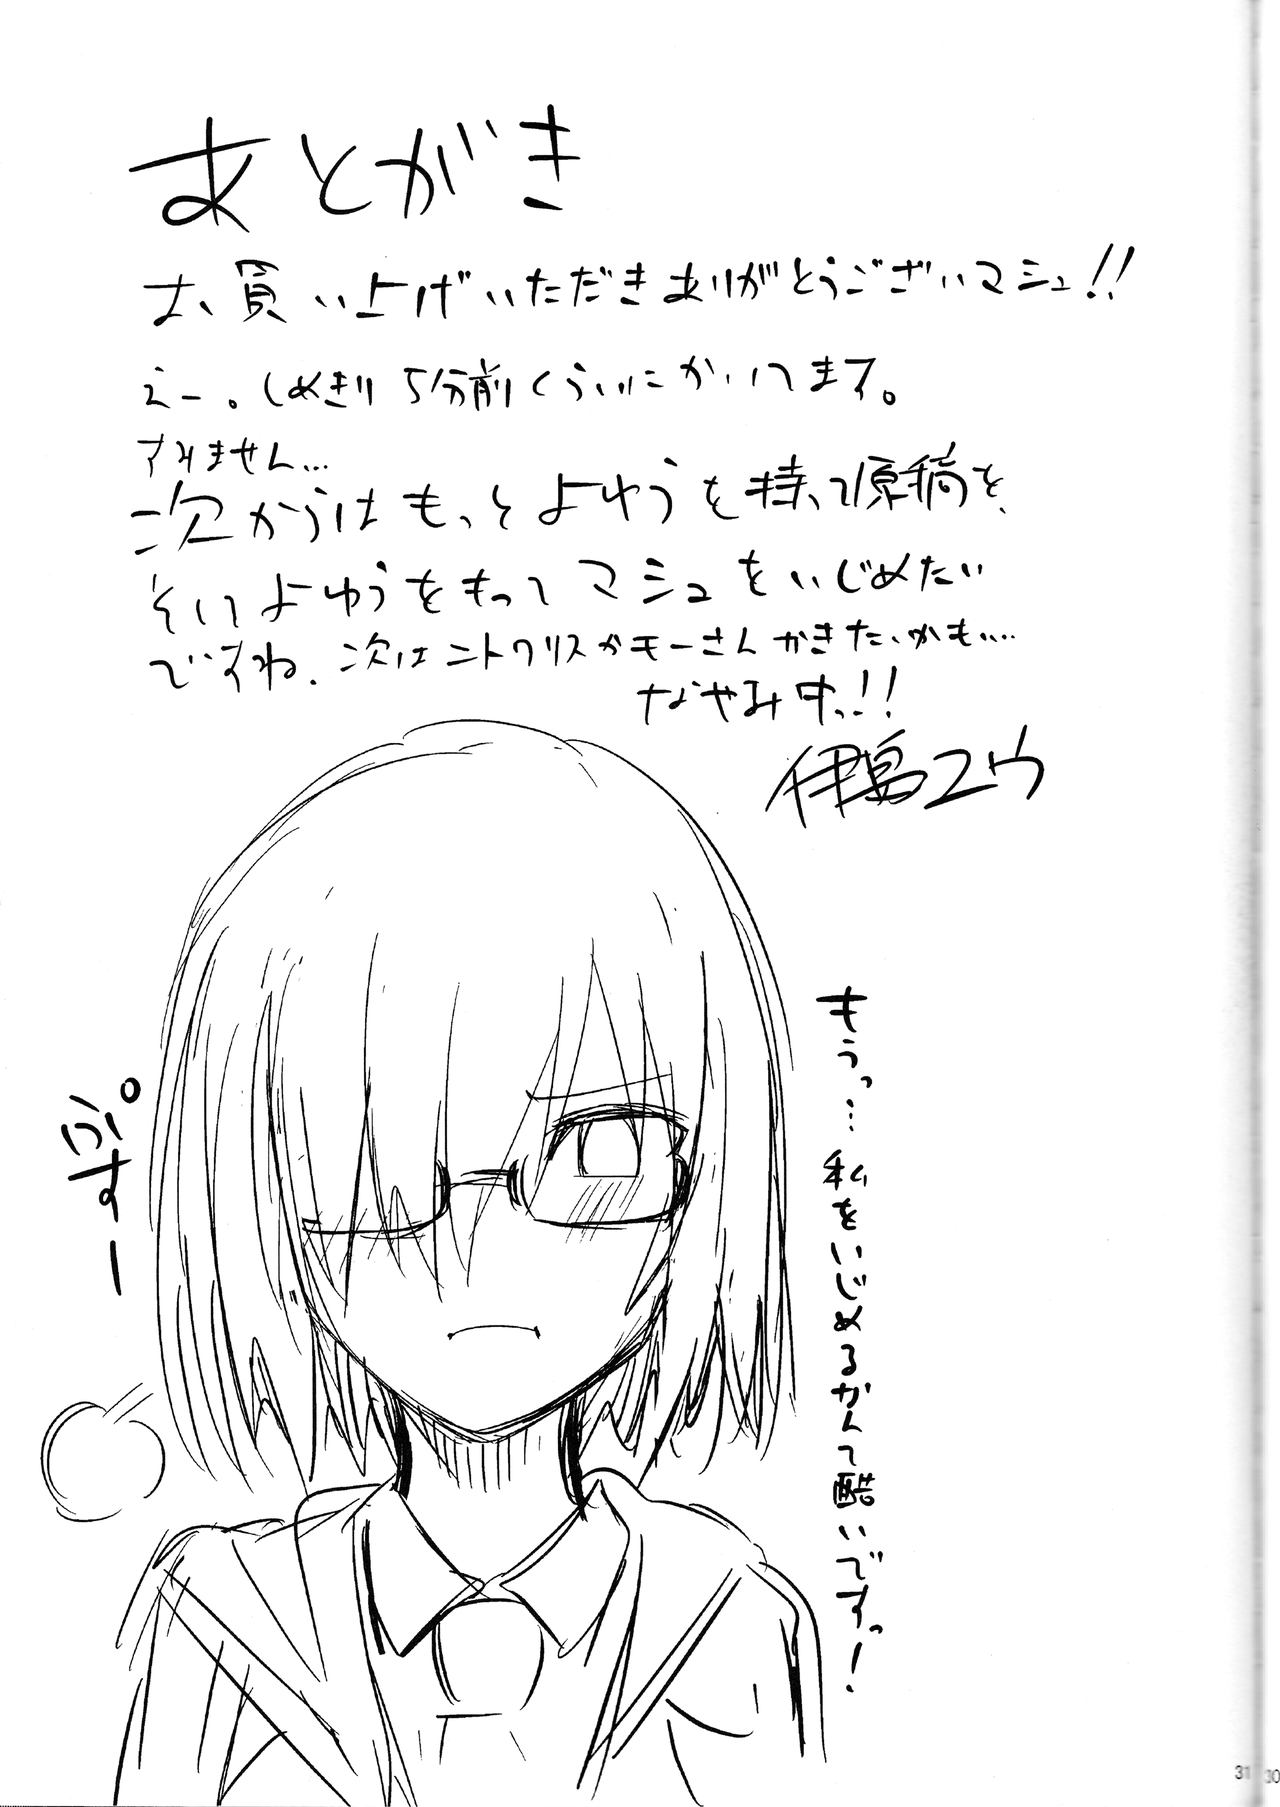 あとがき
お買い上げいただきありがとうございマシュ!!
えー。しめきり5分前くらいにかいてます。
すみません…
次からはもっとよゆうを持って原稿を、
そしてよゆうをもってマシュをいじめたい
ですね、次はニトクリスかモーさんかきたいかも…
なやみ中っ!!
伊島ユウ
もうっ…私をいじめるなんて酷いですっ!
ぷ。
31
30